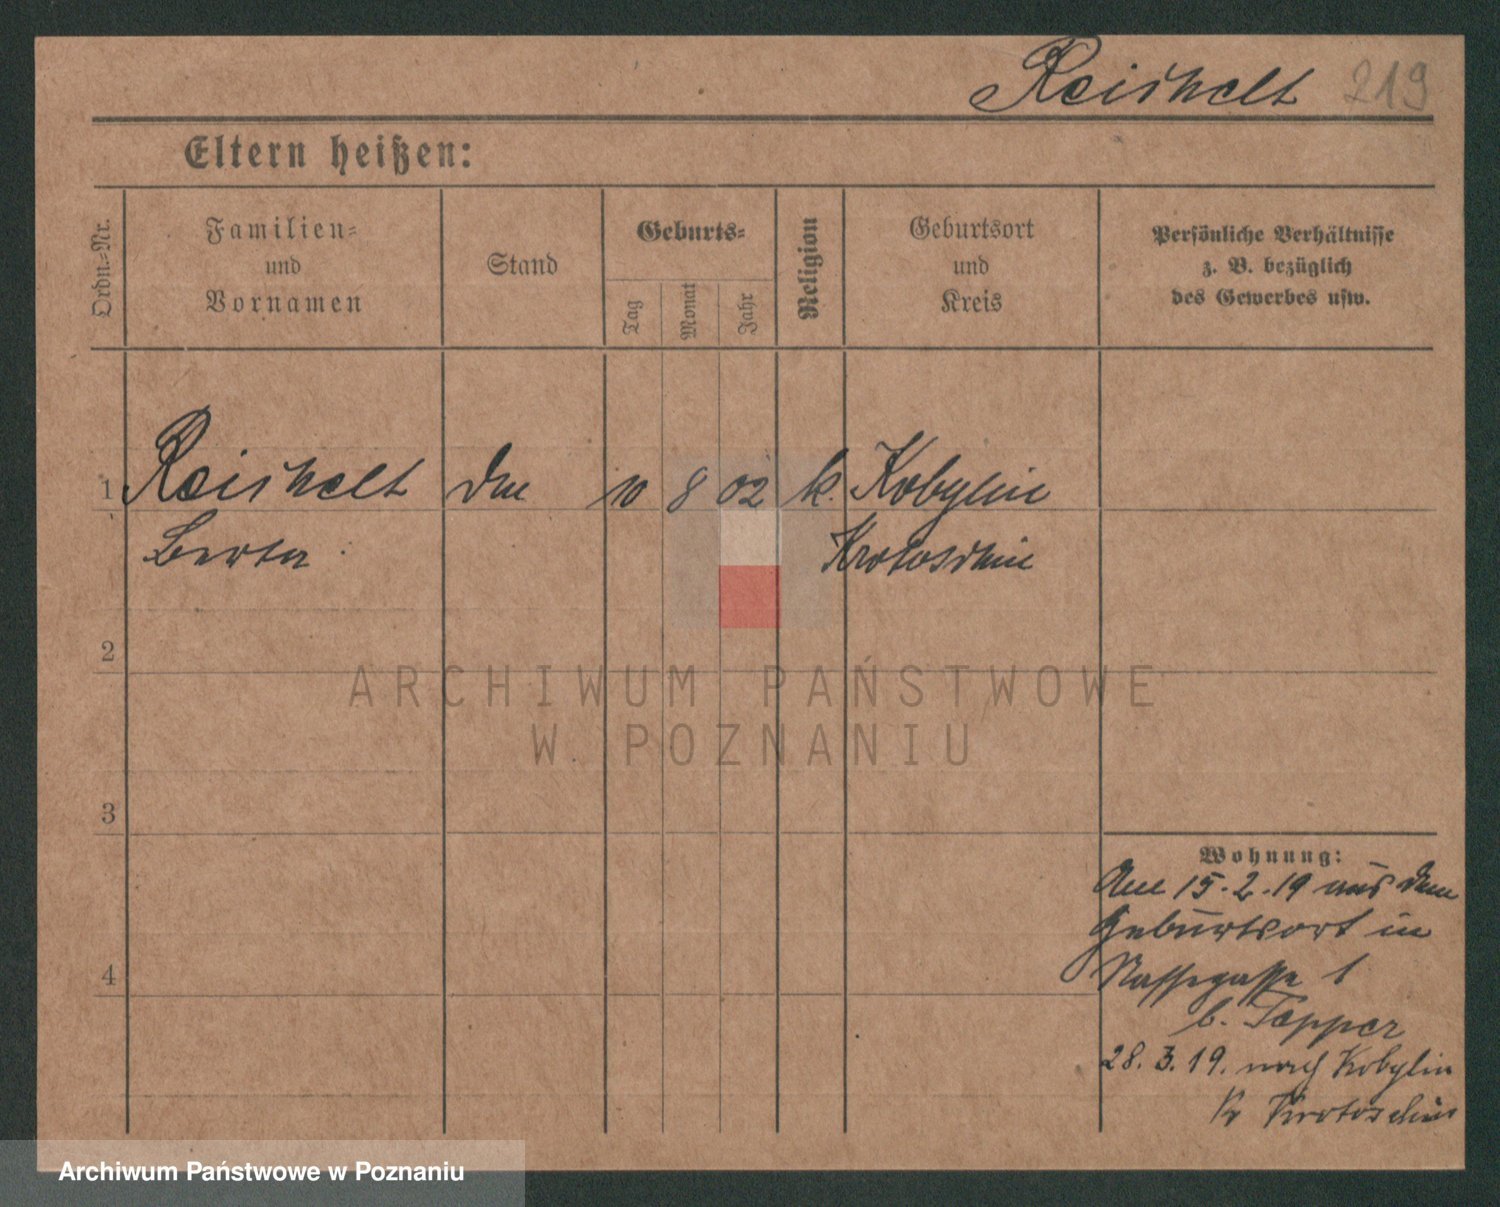 Reishelt 219
Eltern heißen:
Ordn.-Nr.
Familien-
und
Vornamen
Stand
Geburts-
Tag
Monat
Jahr
Religion
Geburtsort
und
Kreis
Persönliche Verhältnisse
z. B. bezüglich
des Gewerbes usw.
1 Reishelt 10 8 02 k. Kobylin
Berta Krotoschin
2
3
4
Wohnung:
Am 15.2.19 aus dem
Geburtsort in
Nassegasse 1
b. Tepper
28.3.19. nach Kobylin
Kr Krotoschin
ARCHIWUM PAŃSTWOWE
W POZNANIU
Archiwum Państwowe w Poznaniu